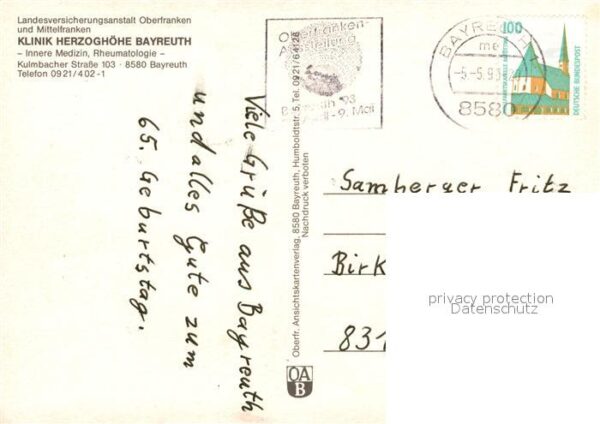 Landesversicherungsanstalt Oberfranken
und Mittelfranken
KLINIK HERZOGHÖHE BAYREUTH
– Innere Medizin, Rheumatologie –
Kulmbacher Straße 103 · 8580 Bayreuth
Telefon 09 21 / 4 02 - 1
Viele Grüße aus Bayreuth
und alles Gute zum
65. Geburtstag.
Oberfr. Ansichtskartenverlag, 8580 Bayreuth, Humboldtstr. 5, Tel. 09 21/6 41 26
Nachdruck verboten
OA
B
'93
- 9. Mai
BAYREUTH
me
-5.-5.93
8580
100
DEUTSCHE BUNDESPOST
Samberger Fritz
Birk
831
privacy protection
Datenschutz